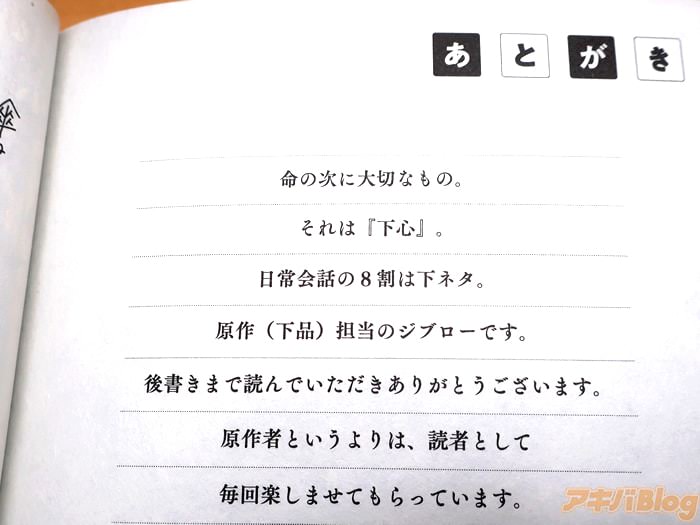 あとがき
傘
命の次に大切なもの。
それは『下心』。
日常会話の８割は下ネタ。
原作（下品）担当のジブローです。
後書きまで読んでいただきありがとうございます。
原作者というよりは、読者として
毎回楽しませてもらっています。
アキバBlog